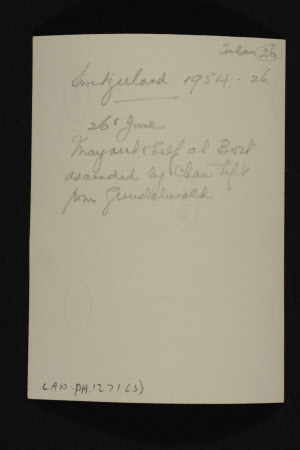 26
Switzerland 1954. 26.
26t June
Margaret & Self at Bort
ascended by Chair lift
from Grindelwald
LAN.PH.1271(5)